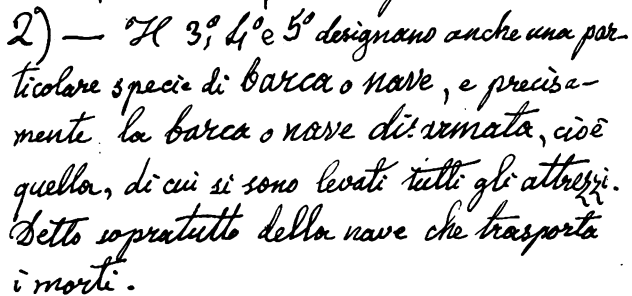 2) — Il 3°, 4° e 5° designano anche una par-
ticolare specie di barca o nave, e precisa-
mente la barca o nave disarmata, cioè
quella, di cui si sono levati tutti gli attrezzi.
Detto sopratutto della nave che trasporta
i morti.